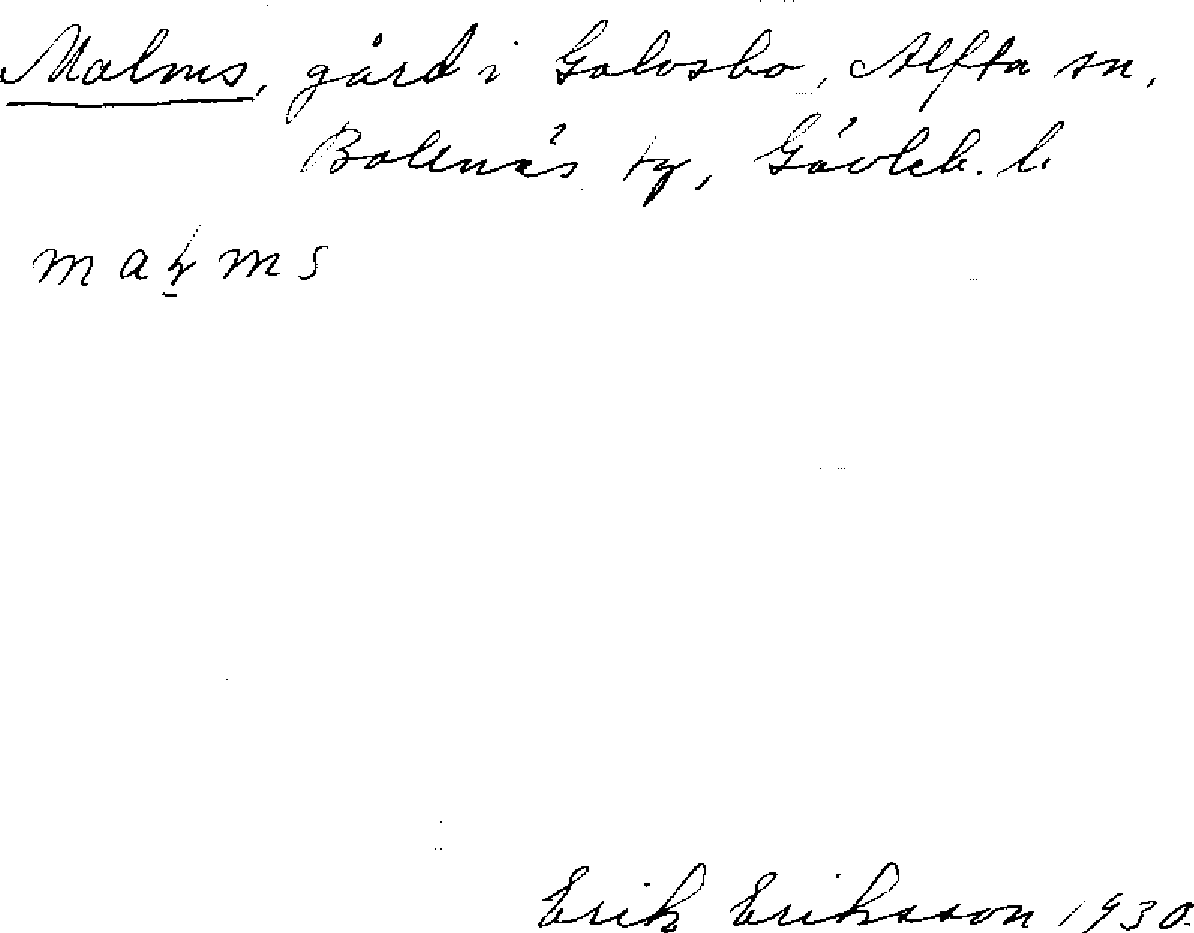 Malms, gård i Galvsbo, Alfta sn,
Bollnäs tg, Gävleb. l.
maɫms
Erik Eriksson 1930.